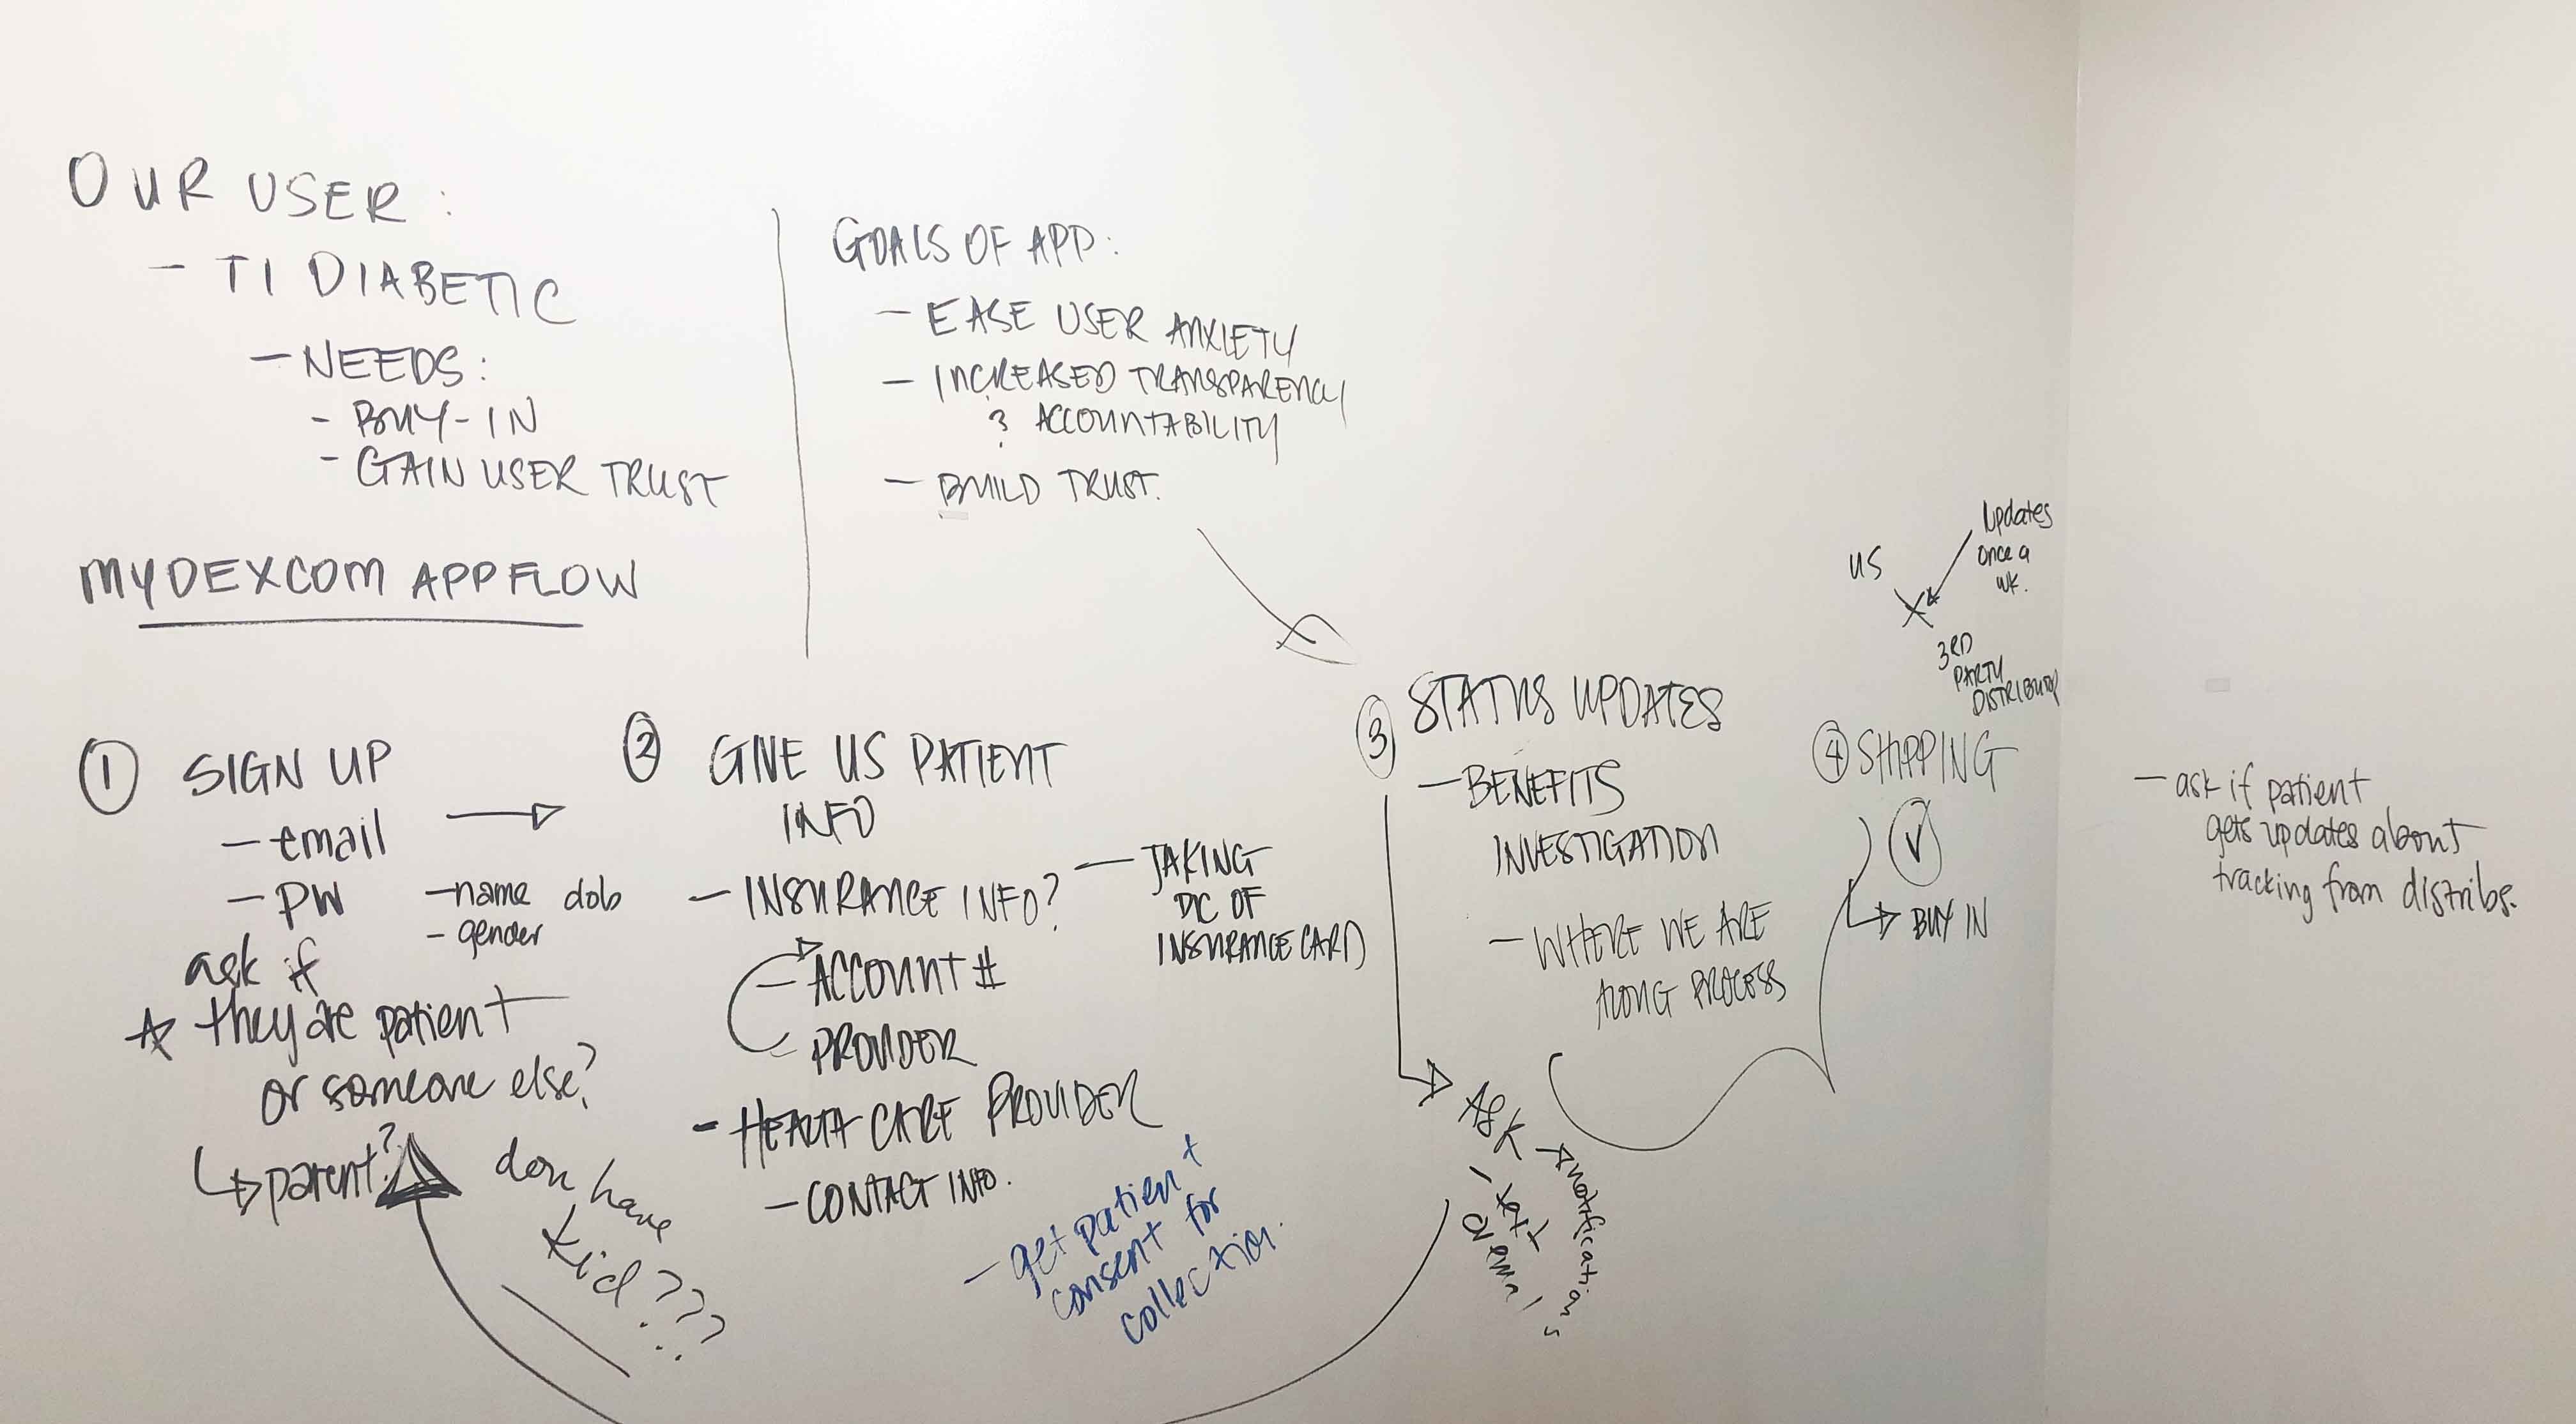 OUR USER:
- T1 DIABETIC
- NEEDS:
- BUY-IN
- GAIN USER TRUST
GOALS OF APP:
- EASE USER ANXIETY
- INCREASED TRANSPARENCY
& ACCOUNTABILITY
- BUILD TRUST.
MYDEXCOM APP FLOW
① SIGN UP
- email
- PW
- name dob
- gender
ask if
☆ they are patient
or someone else?
↳ parent?
don have
kid???
② GIVE US PATIENT
INFO
- INSURANCE INFO?
- TAKING
PIC OF
INSURANCE CARD
- ACCOUNT #
- PROVIDER
- HEALTH CARE PROVIDER
- CONTACT INFO.
- get patient
consent for
collection.
③ STATUS UPDATES
- BENEFITS
INVESTIGATION
- WHERE WE ARE
ALONG PROCESS
ASK
- text
or email
notifications
US
updates
once a
wk.
3RD
PARTY
DISTRIBUTOR
④ SHIPPING
V
BUY IN
- ask if patient
gets updates about
tracking from distribs.